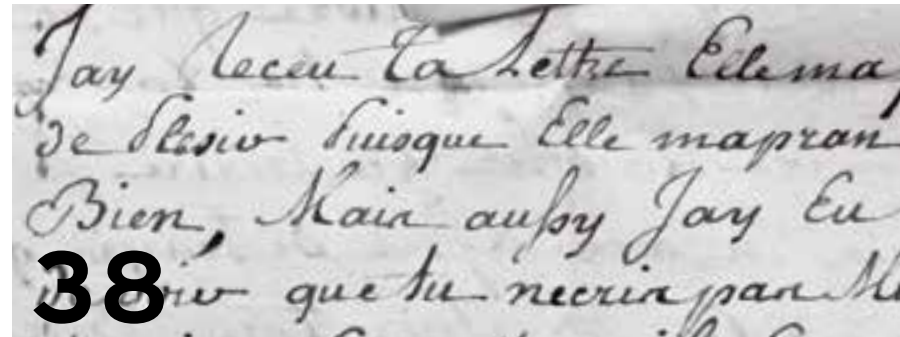 Jay Receu Ta Lettre Elle ma
de Plesir Puisque Elle mapran
Bien, Mais aussy Jay Eu
38 que tu necris pas